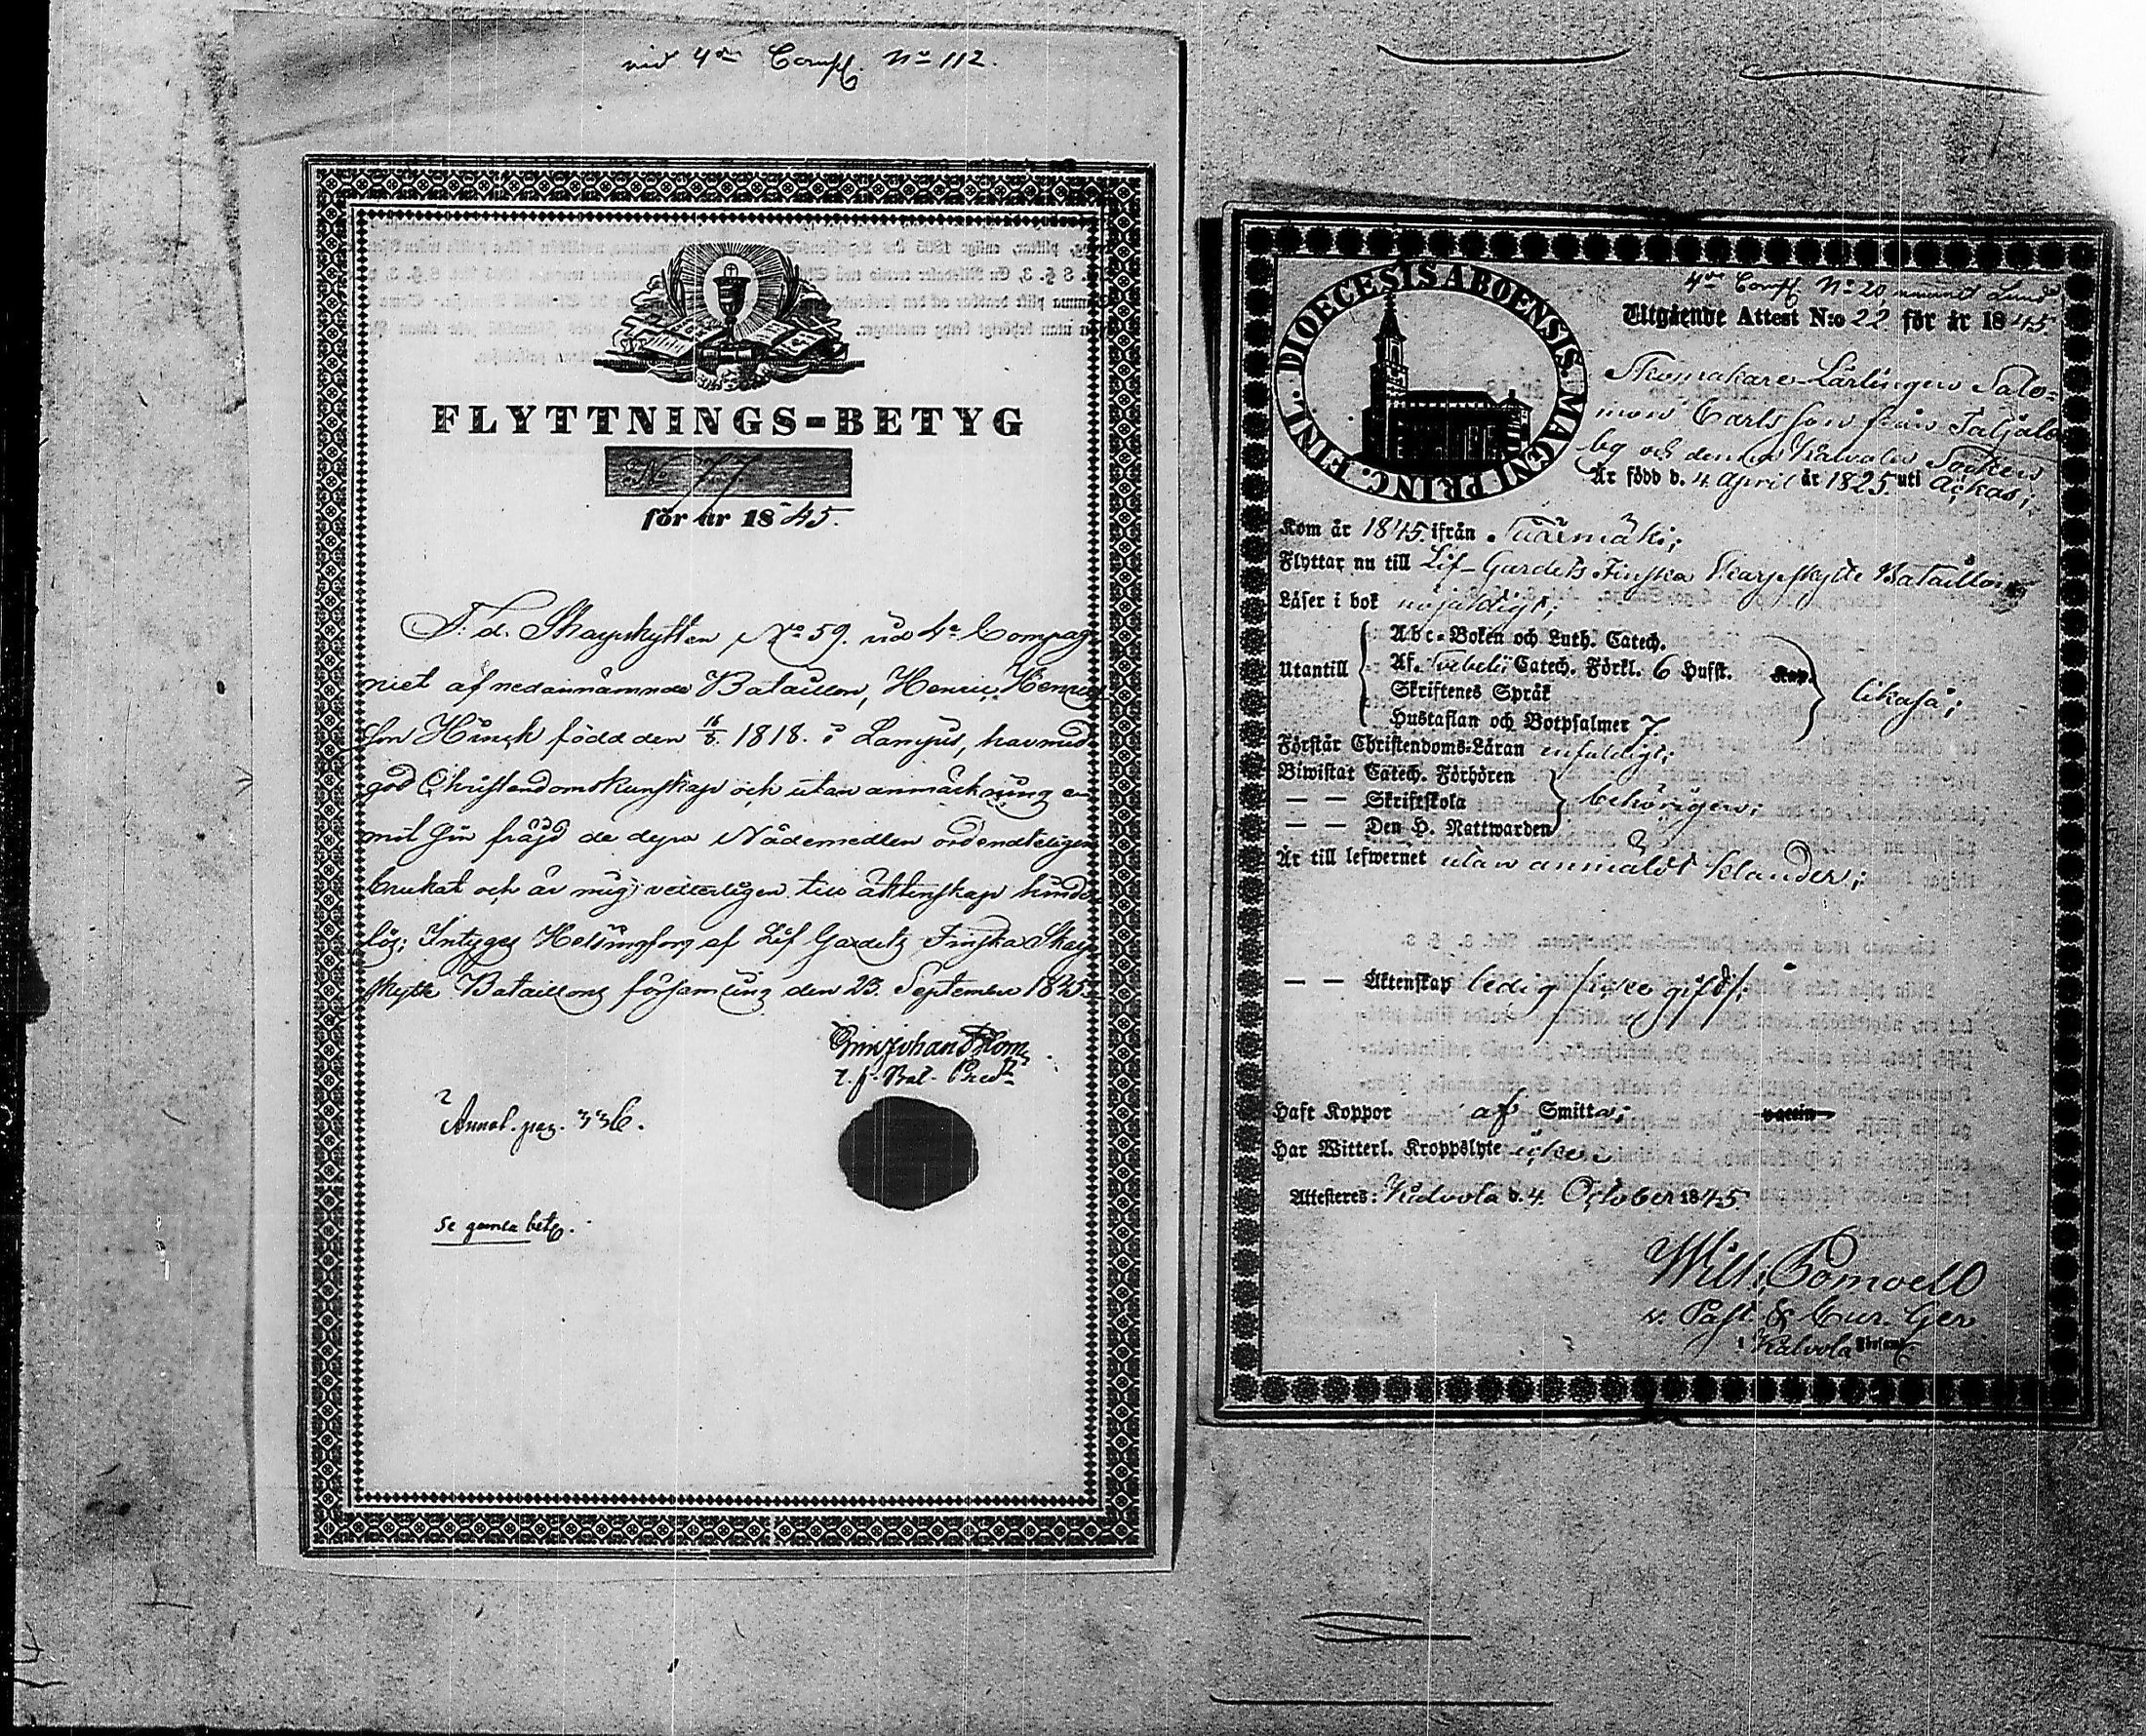 vid 4de Comp. No 112.
FLYTTNINGS-BETYG
No 77
för år 1845.
F. d. Skarpskytten No 59. vid 4e Compag
niet af nedannämnde Bataillon, Henric Henrics
son Hirsch född den 16/8. 1818. i Lampis, har med
god Christendomskunskap och utan anmärkning
mot sin fräjd de dyra Nådemedlen ordendteligen
brukat och är mig veterligen till äktenskap hinder
lös; Intygas Helsingfors af Lif Gardets Finska Skarp
skytte Bataillons församling den 23. September 1845.
t. f. Bat. Pred.
Annot. pag. 336.
se gamla betg.
DIOECESIS ABOENSIS. MAGNI PRINC. FINL.
4de Comp. No 20, namnet Lund
Utgående Attest N:o 22 för år 1845
Skomakare-Lärlingen Salo-
mon Carlsson från
by och denna Kalvola Socken
Är född d. 4 April år 1825. uti Ackas;
Kom år 1845. ifrån
Flyttar nu till Lif-Gardets Finska Skarpskytte Bataillon
Läser i bok nöjaktigt;
Abc-Boken och Luth. Catech.
Utantill Af. Svebelii Catech. Förkl. 6 Hufst. Kap. likaså;
Skriftenes Språk
Hustaflan och Botpsalmer 7.
Förstår Christendoms-Läran enfaldigt;
Biwistat Catech. Förhören
— — Skriftskola behörigen;
— — Den H. Nattwarden
Är till lefwernet utan anmäldt klander;
— — Äktenskap ledig /icke gift/;
Haft Koppor af Smitta; vaccin
Har Witterl. Kroppslyte icke
Attesteres: Kalvola d. 4. October 1845.
Wilh. Pomoell
v. Past. & Cur. Ger
i Kalvola